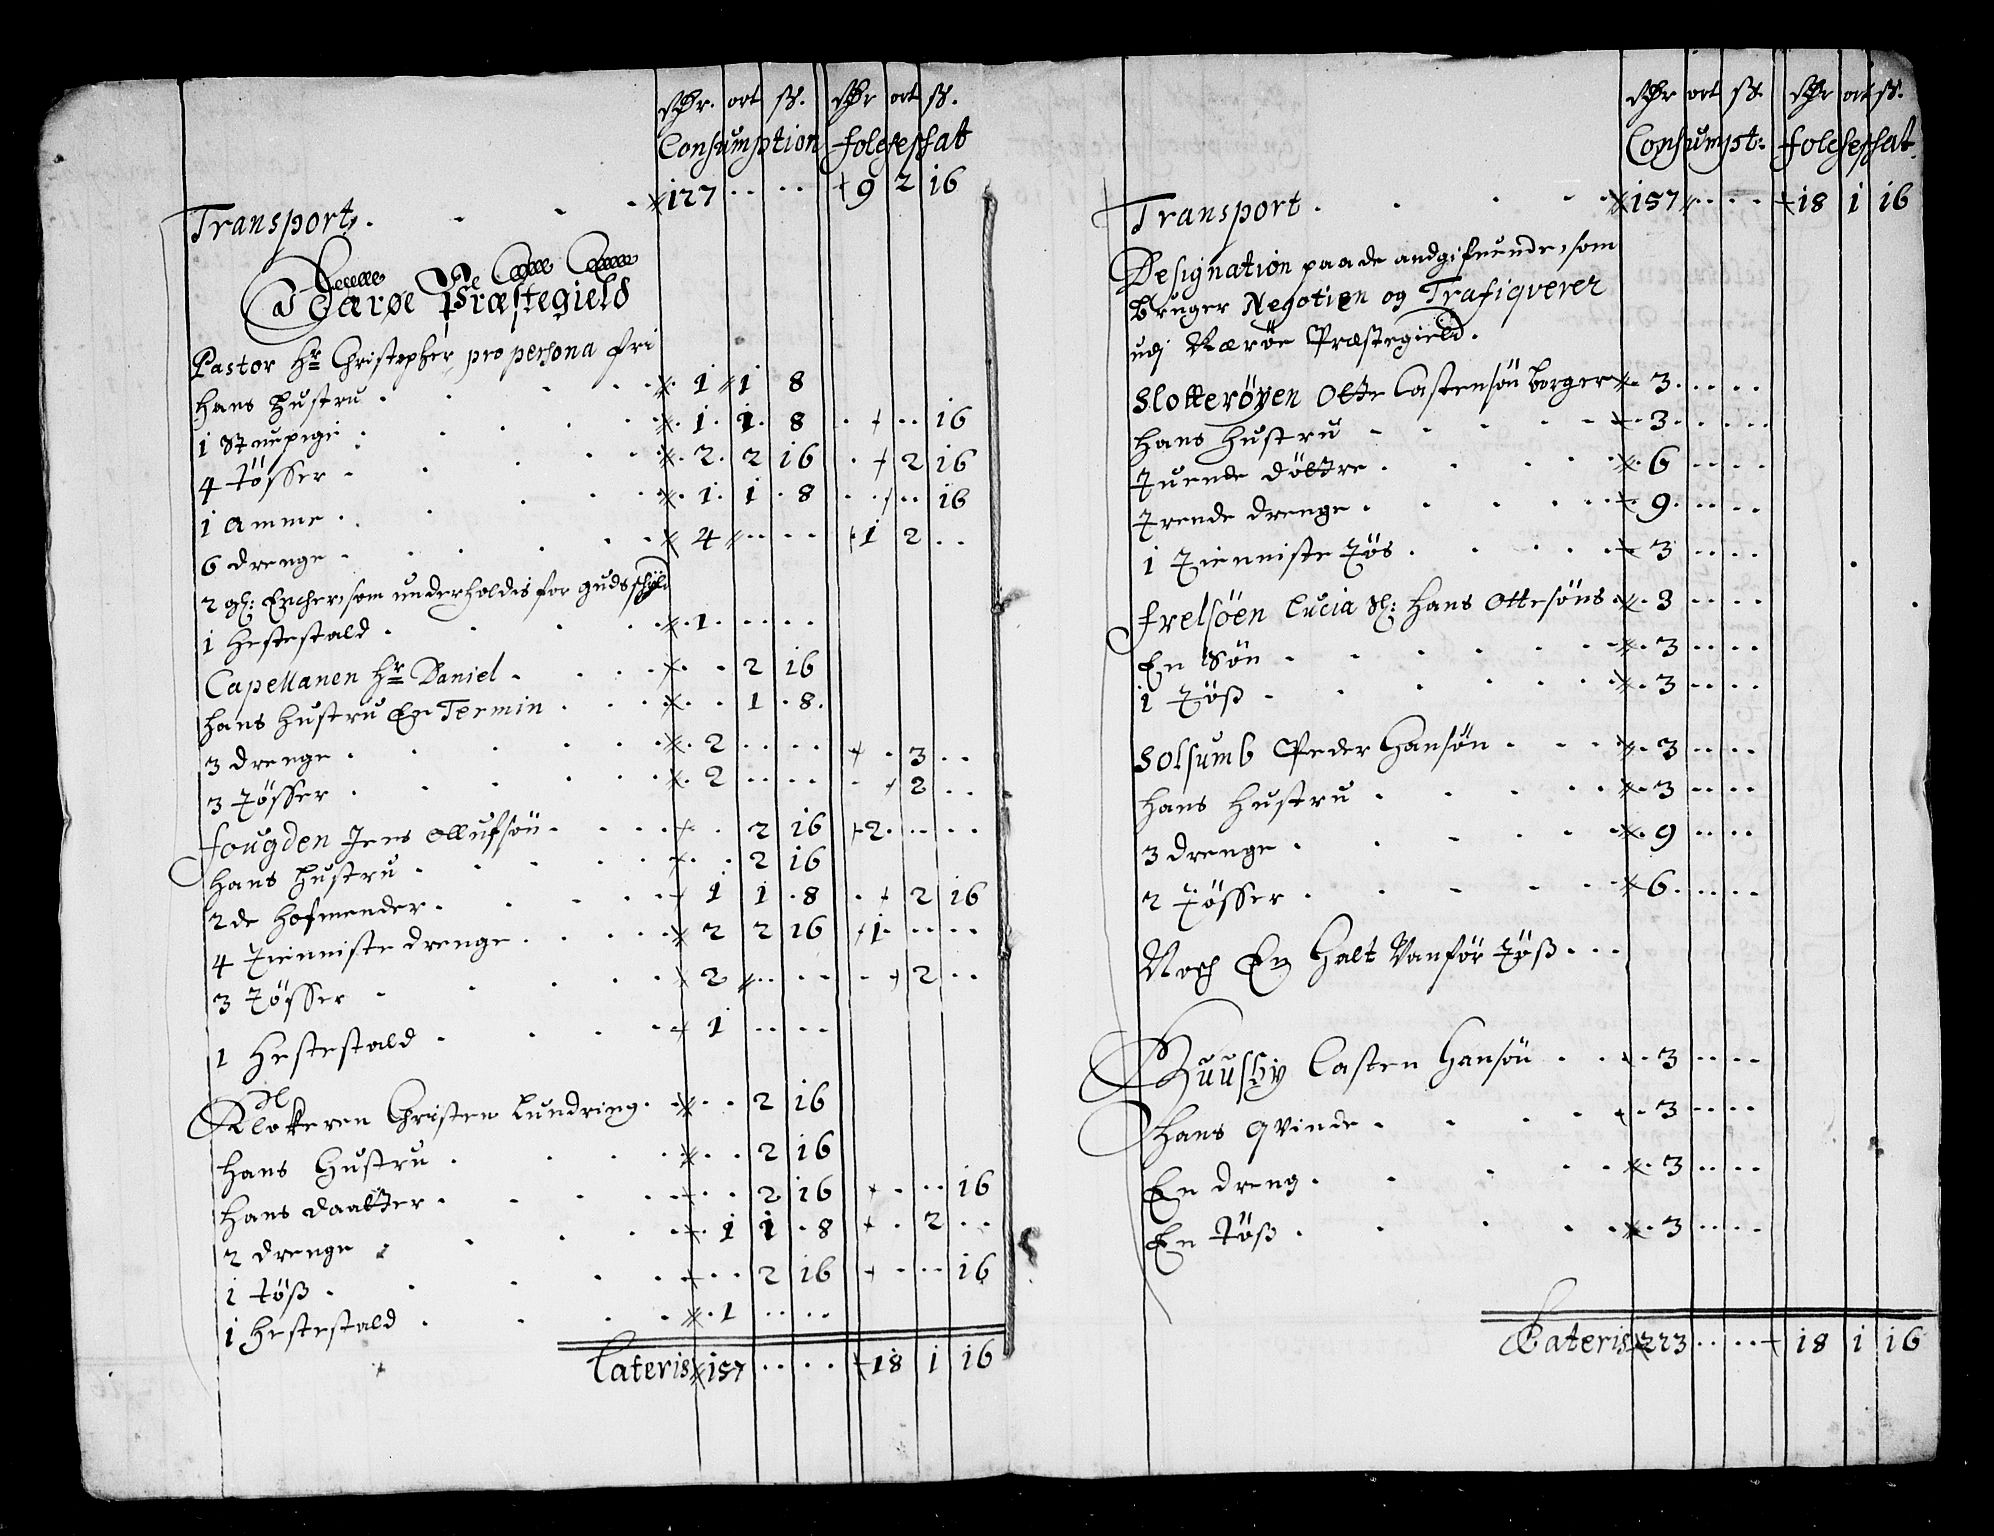 Rdr. ort sk. Rdr ort sk.
Consumption folcheschat
Transport. 127 . . . . 9 2 16
Nærøe Præstegield
Pastor Hr Christopher, pro persona fri
hans hustru . 1 1 8
1 Stuepige . 1. 1. 8 . . . 16
4 tösser . 2. 2 16 . 2 16
1 amme . 1. 1 . 8 . . . 16
6 drenge . 4 . . . . 1 2 . .
2 gl: Encher, som underholdis for guds schyld
1 hestestald . 1 . . . .
Capellanen Hr Daniel . . 2 16
hans hustru En Termin . . . 1 . 8.
3 drenge . 2 . . . . . 3 . .
3 tösser . 2 . . . . . 2 . .
fougden Jens Ollufsön . . 2 16 2 . . . .
hans hustru . . 2 16
2de hofmender . 1 1 . 8 . 2 16
4 tienniste drenge . 2 2 16 1 . . . .
3 tösser . 2 . . . . . 2 . .
1 hestestald . 1 . . . .
Klockeren Christen Lundring . . . 2 16
hans hustru . . . 2 16
hans daatter . . . 2 16 . . . 16
2 drenge . 1 1 . 8 . 2 . .
1 töß . . . 2 16 . . . 16
1 hestestald . 1 . . . .
Lateris 157 . . . . 18 1 16
Rdr ort sk. Rdr ort sk.
Consumpt: folcheschat.
Transport . 157 . . . . 18 1 16
Designation paa de andgifvende, som
bruger Negotien og Trafiqverer
udj Næröe Præstegield.
Slotteröyen Otte Castensön borger . 3 . . . .
hans hustru . 3 . . . .
Tuende döttre . 6 . . . .
Trende drenge . 9 . . . .
1 tienniste tös . 3 . . . .
frelsöen Lucia Sl: Hans Ottesöns . 3 . . . .
En Sön . 3 . . . .
1 töß . 3 . . . .
Solsumb Peder Hansön . 3 . . . .
hans hustru . 3 . . . .
3 drenge . 9 . . . .
2 tösser . 6 . . . .
Noch En halt Vanför töß . . .
Huusby Casten Hansön . 3 . . . .
hans qvinde . 3 . . . .
En dreng . 3 . . . .
En töß . 3 . . . .
Lateris 223 . . . . 18 1 16